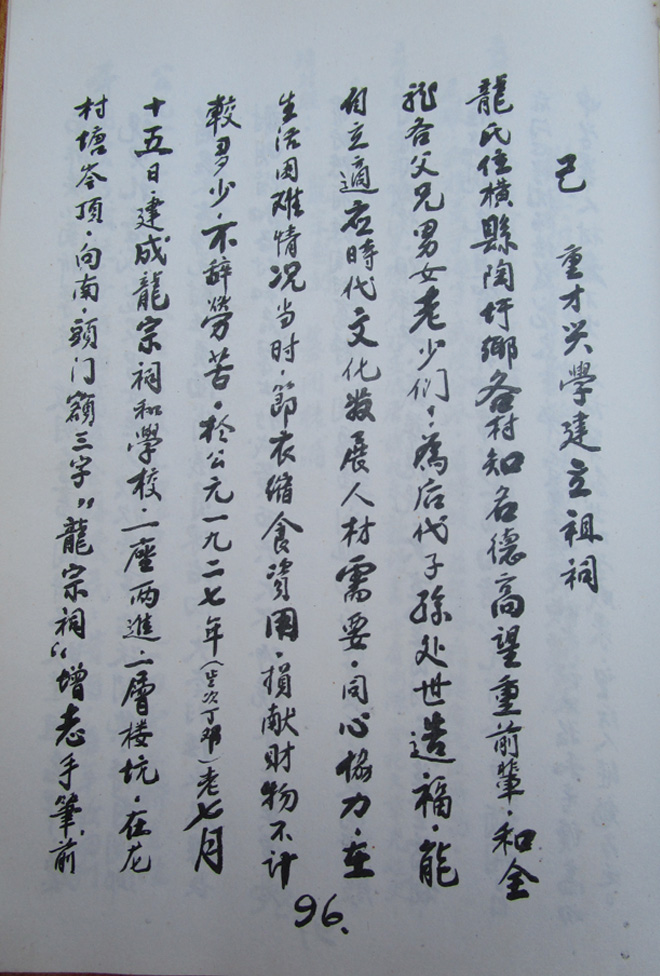 己 重才兴學建立祖祠
龍氏住横縣陶圩鄉各村知名德高望重前輩·和全
各父兄男女老少们·為后代子孫处世造福·能
自立適应時代文化發展人材需要·同心協力·在
生活困难情况当时·節衣缩食資困·損献財物不计
較多少·不辞勞苦·於公元一九二七年(岁次丁卯)老七月
十五日·建成龍宗祠和學校·一座两進二層楼坑·在龙
村塘岺顶·向南·頭门額三字"龍宗祠"增志手筆·前
96.